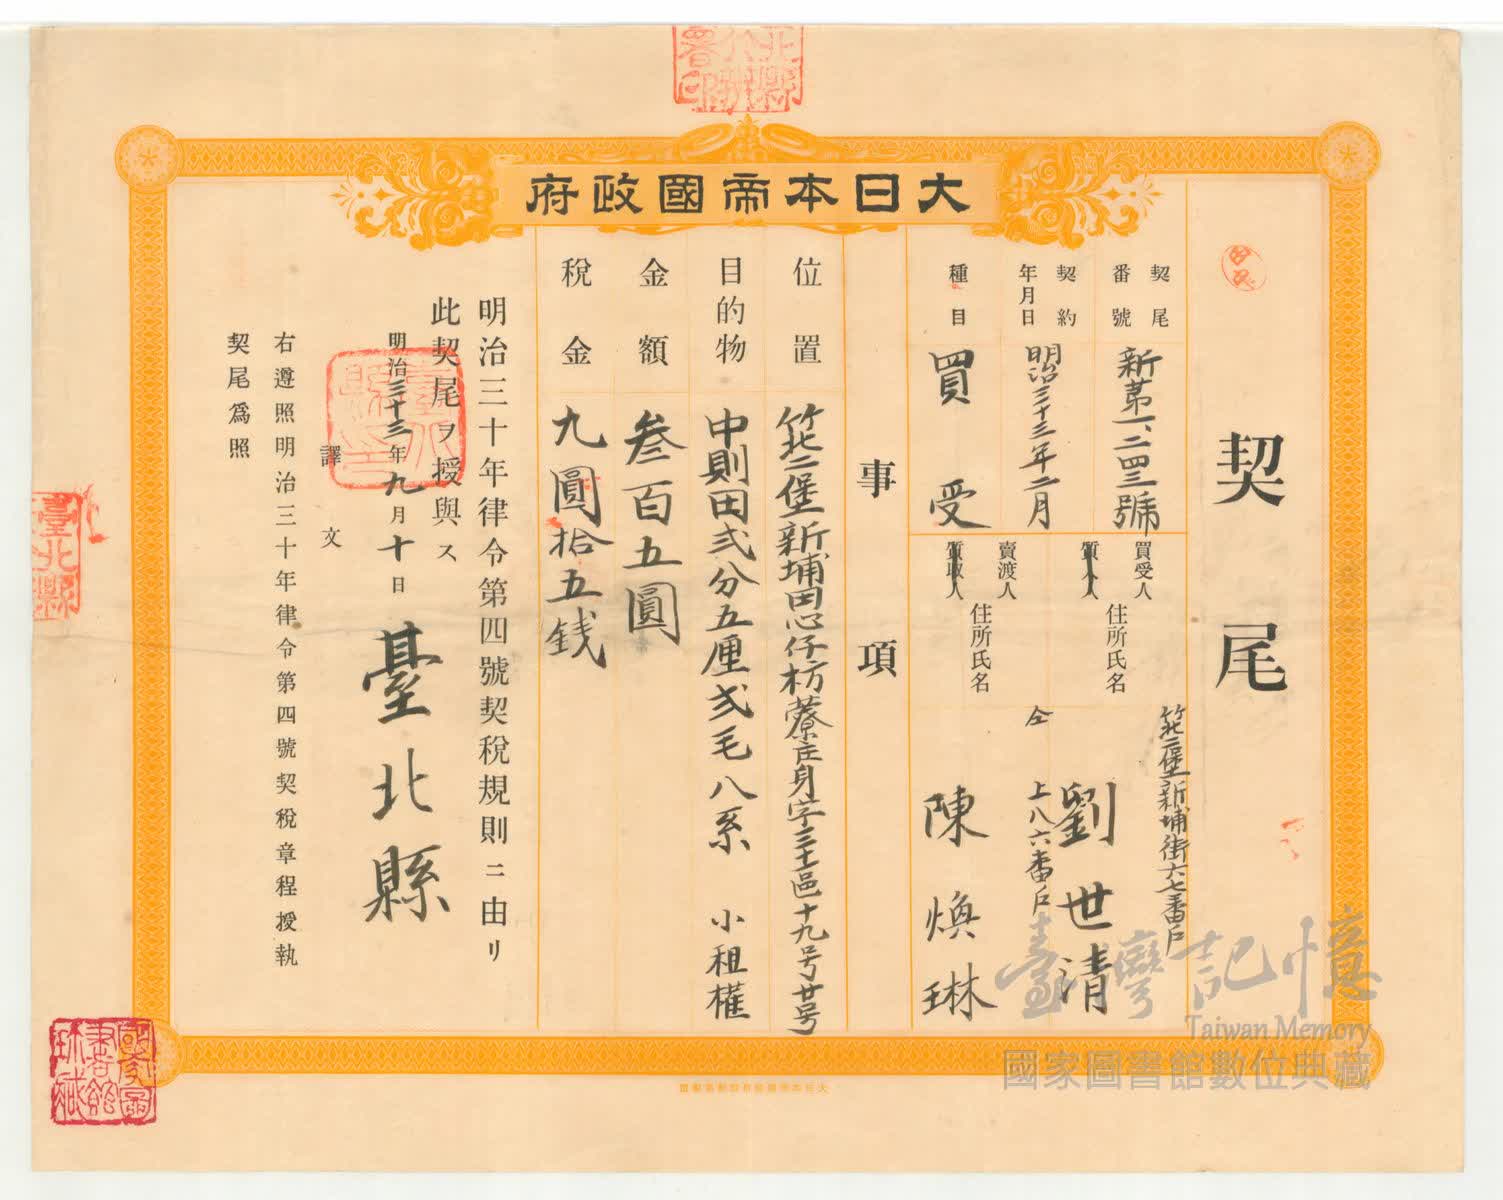 大日本帝國政府
契尾
契尾番號
新第一、二四三號
契約年月日
明治三十三年二月
種目
買受
買受人
質入人
住所氏名
竹北二堡新埔街六七番戶
劉世清
賣渡人
質取人
住所氏名
仝上八六番戶
陳煥琳
事項
位置
竹北二堡新埔田心仔枋藔庄身字三十區十九号廿号
目的物
中則田弍分五厘弍毛八系 小租權
金額
叁百五圓
稅金
九圓拾五銭
明治三十年律令第四號契稅規則ニ由リ
此契尾ヲ授與ス
明治三十三年九月十日
臺北縣
譯文
右遵照明治三十年律令第四號契稅章程授執
契尾爲照
臺北縣
臺灣記憶
Taiwan Memory
國家圖書館數位典藏
國家圖書館珍藏